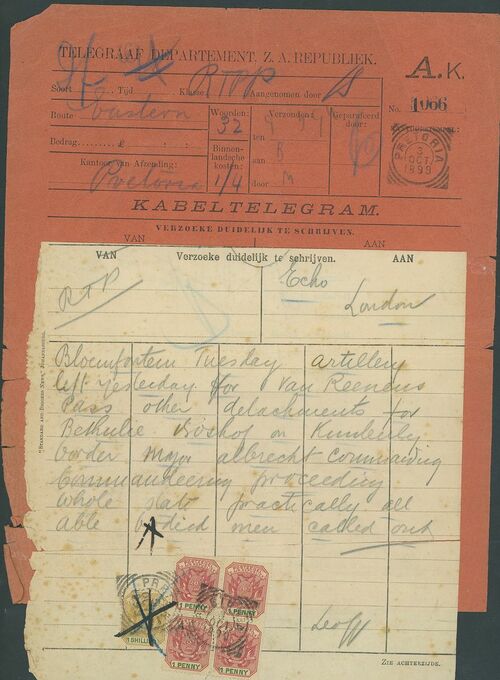 TELEGRAAF DEPARTEMENT. Z. A. REPUBLIEK.
A. K.
Soort Tijd Klasse RTP Aangenomen door
No. 1066
Route Eastern
Woorden: 32
Verzonden:
Geparafeerd door:
Bedrag £
Binnenlandsche kosten: 1/4
ten
aan B
door M
Kantoor van Afzending:
Pretoria
PRETORIA
3
OCT
1899
KABELTELEGRAM.
VERZOEKE DUIDELIJK TE SCHRIJVEN.
VAN AAN
VAN Verzoeke duidelijk te schrijven. AAN
RTP
Echo
London
Bloemfontein Tuesday artillery
left yesterday for Van Reenens
Pass other detachments for
Bethulie Boshof on Kimberley
border major albrecht commanding
Commandeering proceeding
whole state practically all
able bodied men called out
1 SHILLING
1 PENNY
1 PENNY
1 PENNY
1 PENNY
ZIE ACHTERZIJDE.